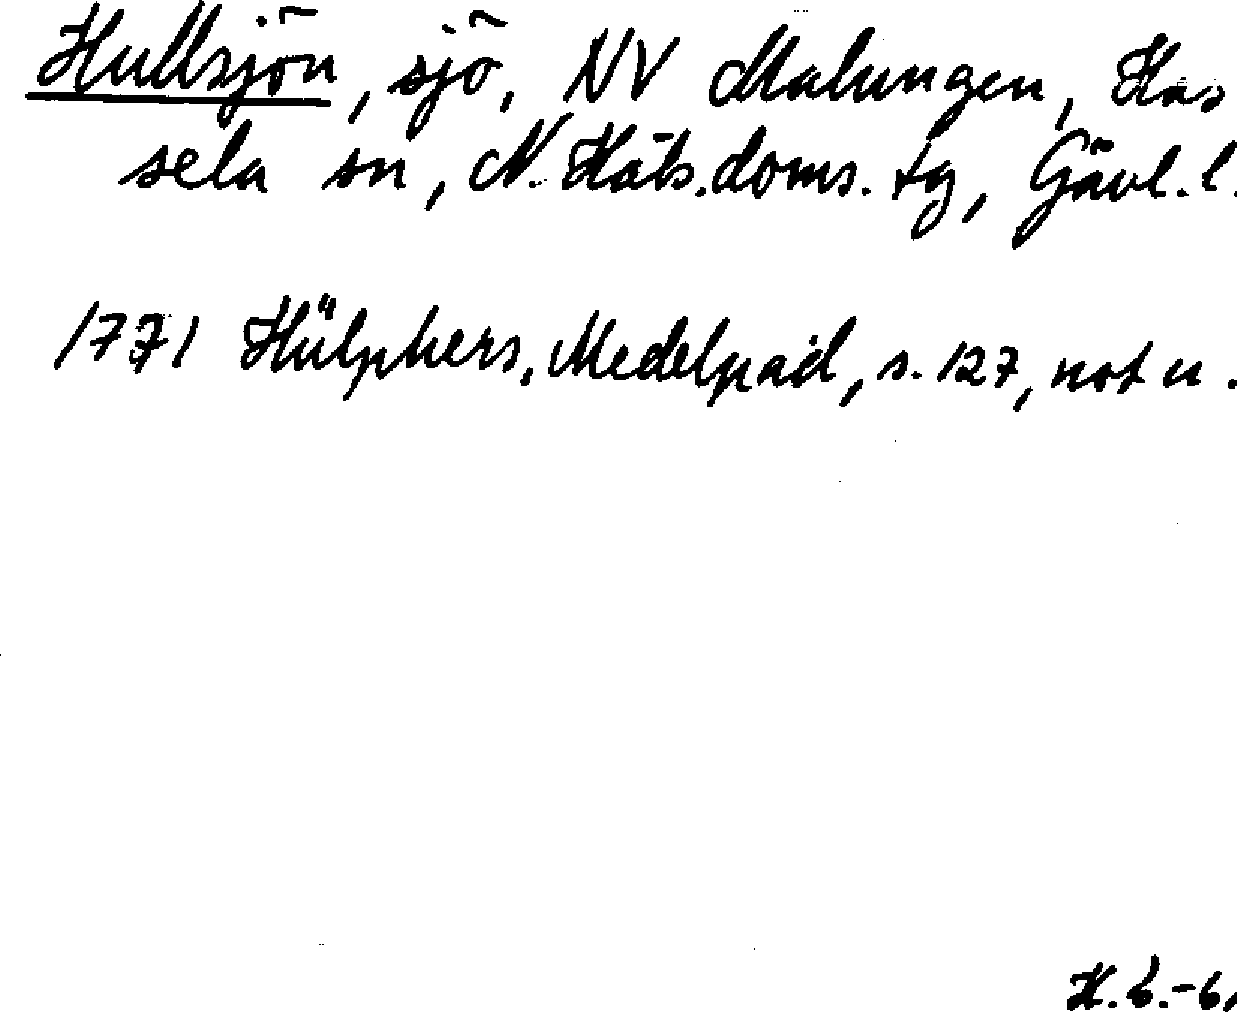 Hullsjön, sjö, NV Malungen, Has
sela sn, N. Häls. doms. tg, Gävl. l.
1771 Hülphers, Medelpad, s. 127, not u.